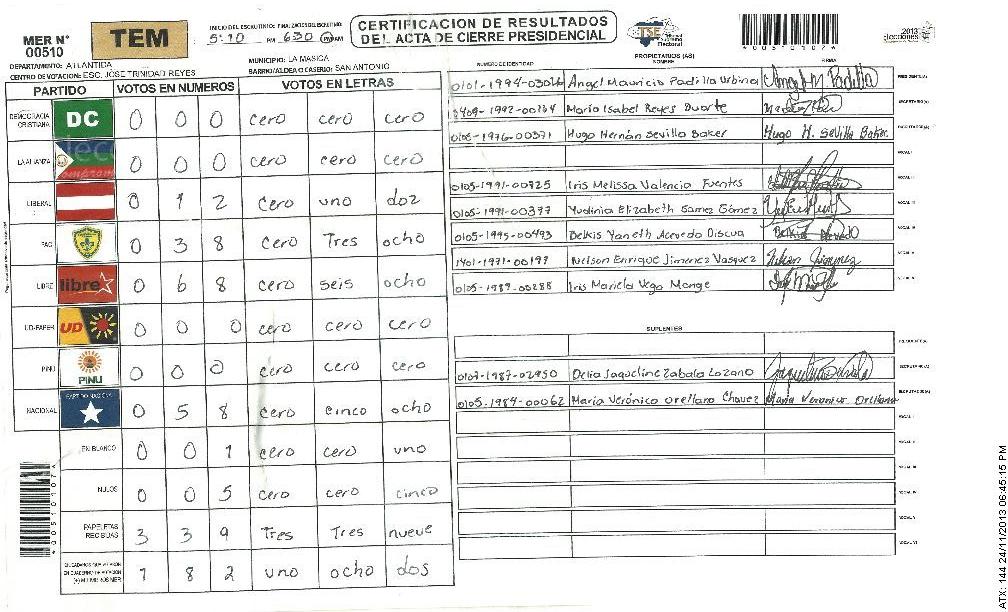 MER N° 00510
TEM
INICIO DEL ESCRUTINIO: FINALIZACION DEL ESCRUTINIO:
5:10 PM 6:30 PM AM
CERTIFICACION DE RESULTADOS
DEL ACTA DE CIERRE PRESIDENCIAL
TSE Tribunal Supremo Electoral
4005101074
2013 elecciones
DEPARTAMENTO: ATLANTICA
MUNICIPIO: LA MASICA
CENTRO DE VOTACION: ESC. JOSE TRINIDAD REYES
BARRIO/ALDEA O CASERIO: SAN ANTONIO
PARTIDO VOTOS EN NUMEROS VOTOS EN LETRAS
DEMOCRACIA CRISTIANA DC 0 0 0 cero cero cero
LA ALIANZA 0 0 0 cero cero cero
LIBERAL 0 1 2 cero uno doz
PAC 0 3 8 cero Tres ocho
LIBRE libre 0 6 8 cero seis ocho
UD-FAPER UD 0 0 0 cero cero cero
PINU PINU 0 0 0 cero cero cero
NACIONAL PARTIDO NACIONAL 0 5 8 cero cinco ocho
EN BLANCO 0 0 1 cero cero uno
NULOS 0 0 5 cero cero cinco
PAPELETAS RECIBIDAS 3 3 9 Tres Tres nueve
1 8 2 uno ocho dos
4005101074
PROPIETARIOS (AS)
NUMERO DE IDENTIDAD NOMBRE FIRMA
Angel Mauricio Padilla Urbina Angel M Padilla PRESIDENTE(A)
Maria Isabel Reyes Duarte SECRETARIO(A)
0105-1976-00371 Hugo Hernán Sevilla Baker Hugo H. Sevilla Baker. ESCRUTADOR(A)
VOCAL I
0105-1991-00725 Iris Melissa Valencia Fuentes VOCAL II
0105-1991-00377 Yudinia Elizabeth Gamez Gómez VOCAL III
0105-1995-00493 Belkis Yaneth Acevedo Discua Belkis Acevedo VOCAL IV
1401-1971-00197 Nelson Enrique Jimenez Vasquez Nelson Jimenez VOCAL V
0105-1989-00288 Iris Mariela Vega Monge
SUPLENTES
PRESIDENTE(A)
0107-1987-02950 Delia Jaqueline Zabala Lozano SECRETARIO(A)
0105-1984-00062 Maria Verónica Orellana Chavez Maria Veronica Orellana ESCRUTADOR(A)
VOCAL I
VOCAL II
VOCAL III
VOCAL IV
VOCAL V
VOCAL VI
ATX: 144 24/11/2013 06:45:15 PM